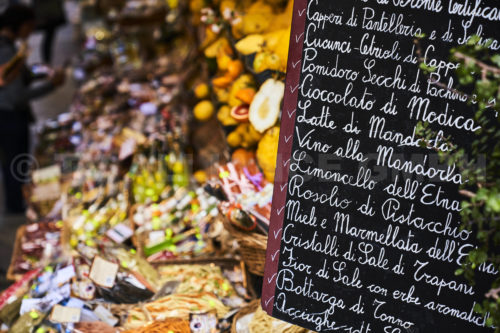 di Bronte Certific
Capperi di Pantelleria e di
Cucunci Cetrioli di Cappe
Pomidoro Secchi di Pachino
Cioccolato di Modica
Latte di Mandorla
Vino alla Mandorla
Limoncello dell'Etna
Rosolio di Pistacchio
Miele e Marmellata dell'E
Cristalli di Sale di Trapani
Fior di Sale con erbe aromatich
Bottarga di Tonno
Acciughe